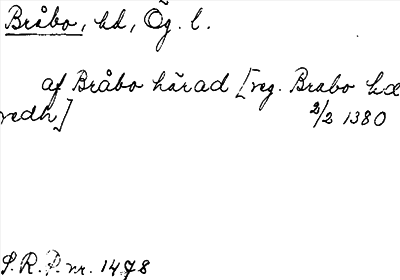 Bråbo, hd, Ög. l.
af Bråbo härad [reg. Brabo hæ
redh]
2/2 1380
S.R.P. nr. 1478